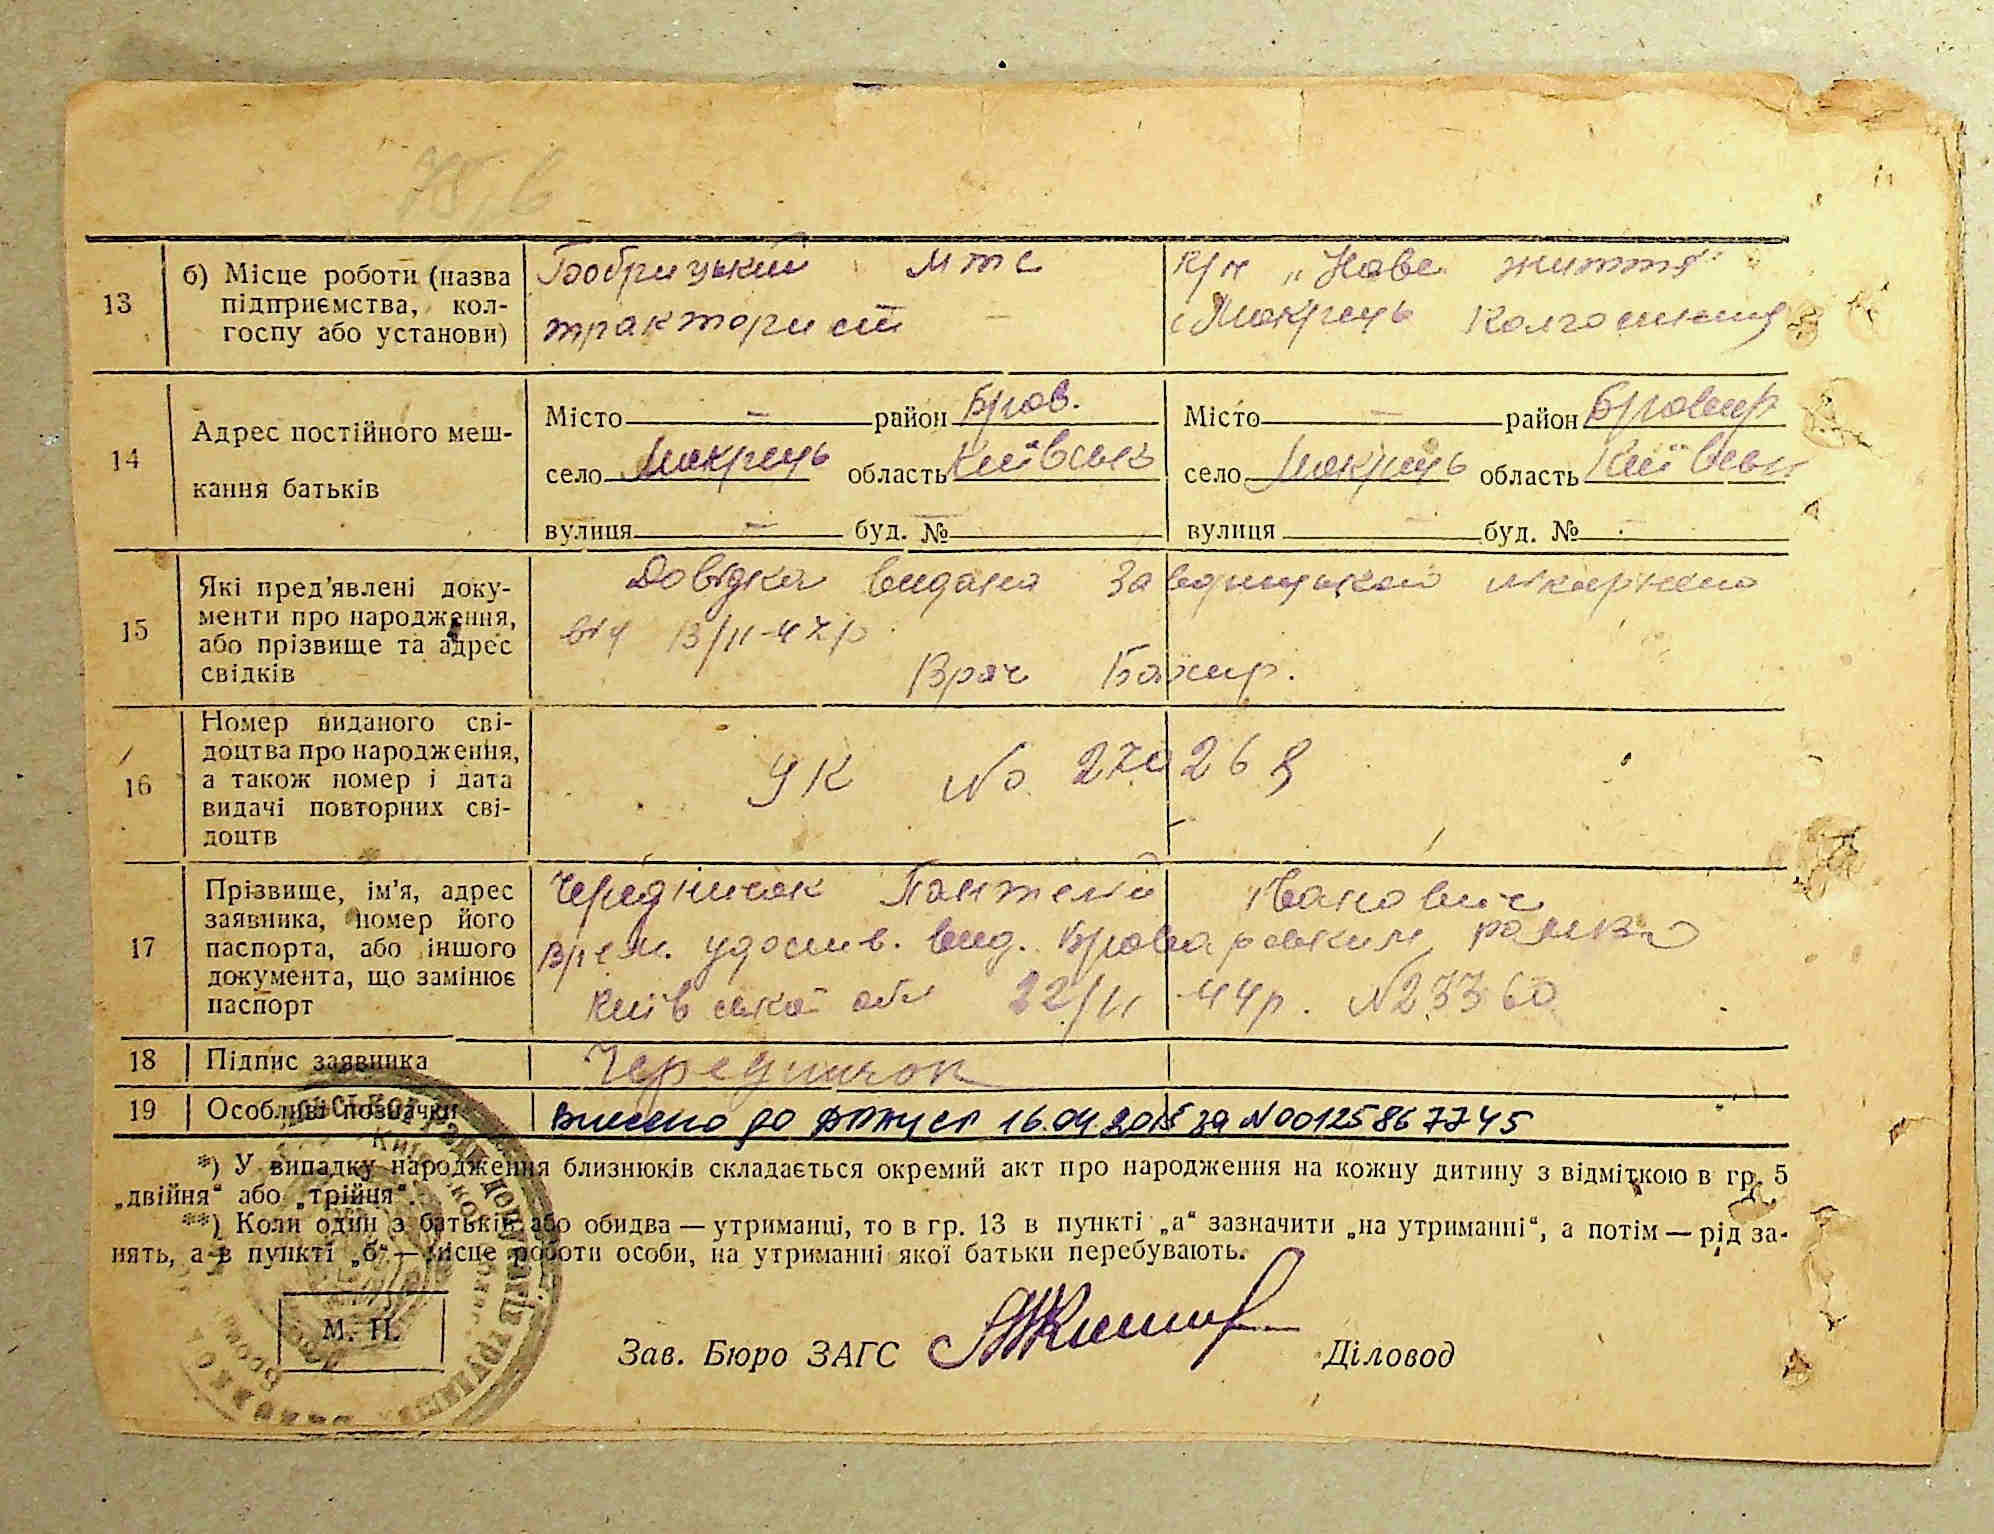 13
б) Місце роботи (назва підприємства, колгоспу або установи)
Бобрицький мтс
тракторист
к/г „Нове життя"
с Мокрець колгоспниця
14
Адрес постійного мешкання батьків
Місто — район Бров.
село Мокрець область Київськ
вулиця — буд. №
Місто — район Бровар
село Мокрець область Київськ
вулиця — буд. № -
15
Які пред'явлені документи про народження, або прізвище та адрес свідків
Довідка видана Заворицькой лікарнею
від 13/II-47р.
Врач
16
Номер виданого свідоцтва про народження, а також номер і дата видачі повторних свідоцтв
УК No 270268
17
Прізвище, ім'я, адрес заявника, номер його паспорта, або іншого документа, що замінює паспорт
Чередничок Пантелій Іванович
Врем. удостов. вид. Броварським
Київської обл 22/II-44р. N23360
18 Підпис заявника
Чередничок
19 Особливі позначки
Внесено до ДРАЦСГ 16.04.2015 за N00125867745
*) У випадку народження близнюків складається окремий акт про народження на кожну дитину з відміткою в гр. 5
„двійня“ або „трійня“.
**) Коли один з батьків або обидва — утриманці, то в гр. 13 в пункті „а“ зазначити „на утриманні“, а потім — рід за-
нять, а в пункті „б“ — місце роботи особи, на утриманні якої батьки перебувають.
М. П.
Зав. Бюро ЗАГС
Діловод